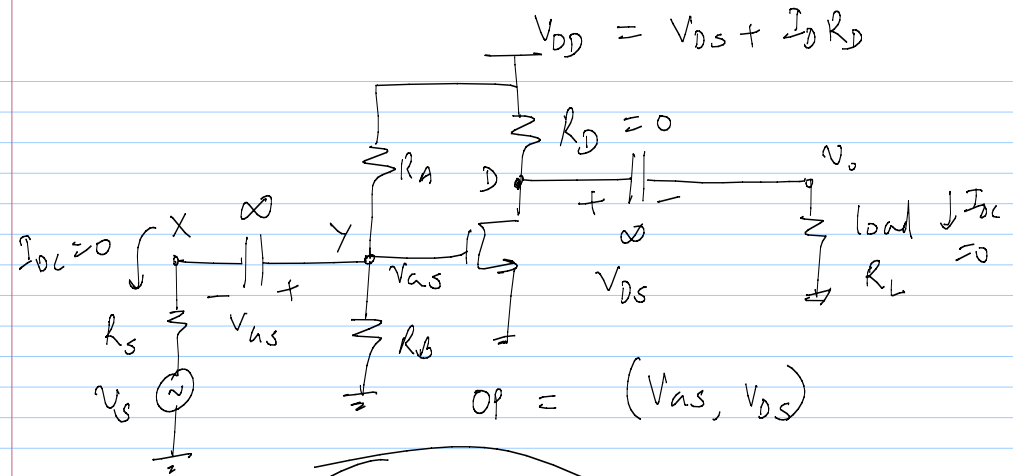 V_DD = V_DS + I_D R_D
R_D = 0
R_A
D
v_o
+ -
∞
V_DS
load
R_L
I_DC = 0
I_DC = 0
X
∞
Y
- +
V_GS
V_GS
R_S
R_B
v_s
OP = (V_GS, V_DS)